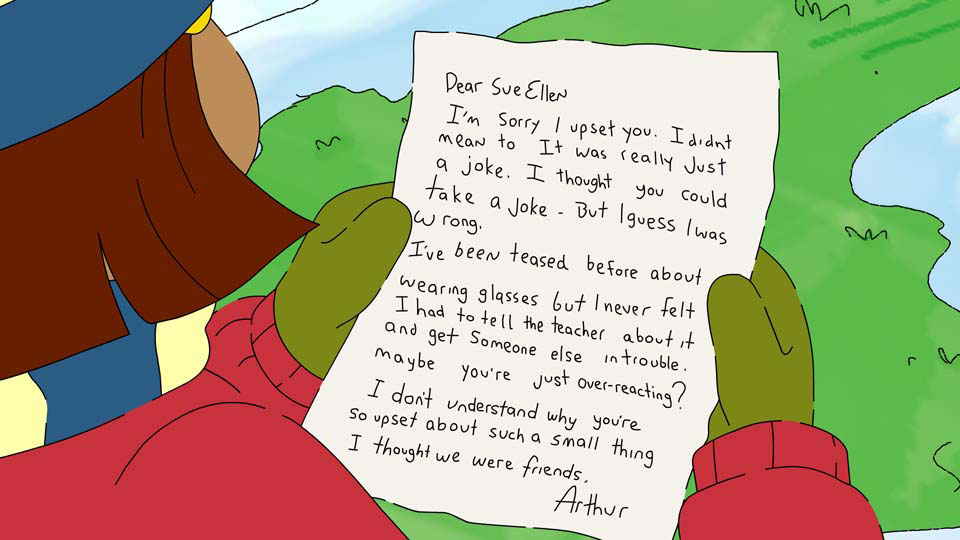 Dear Sue Ellen
I'm sorry I upset you. I didnt
mean to It was really Just
a joke. I thought you could
take a joke - But I guess I was
wrong.
I've been teased before about
wearing glasses but I never felt
I had to tell the teacher about it
and get Someone else in trouble.
maybe you're just over-reacting?
I don't understand why you're
so upset about such a small thing
I thought we were friends.
Arthur